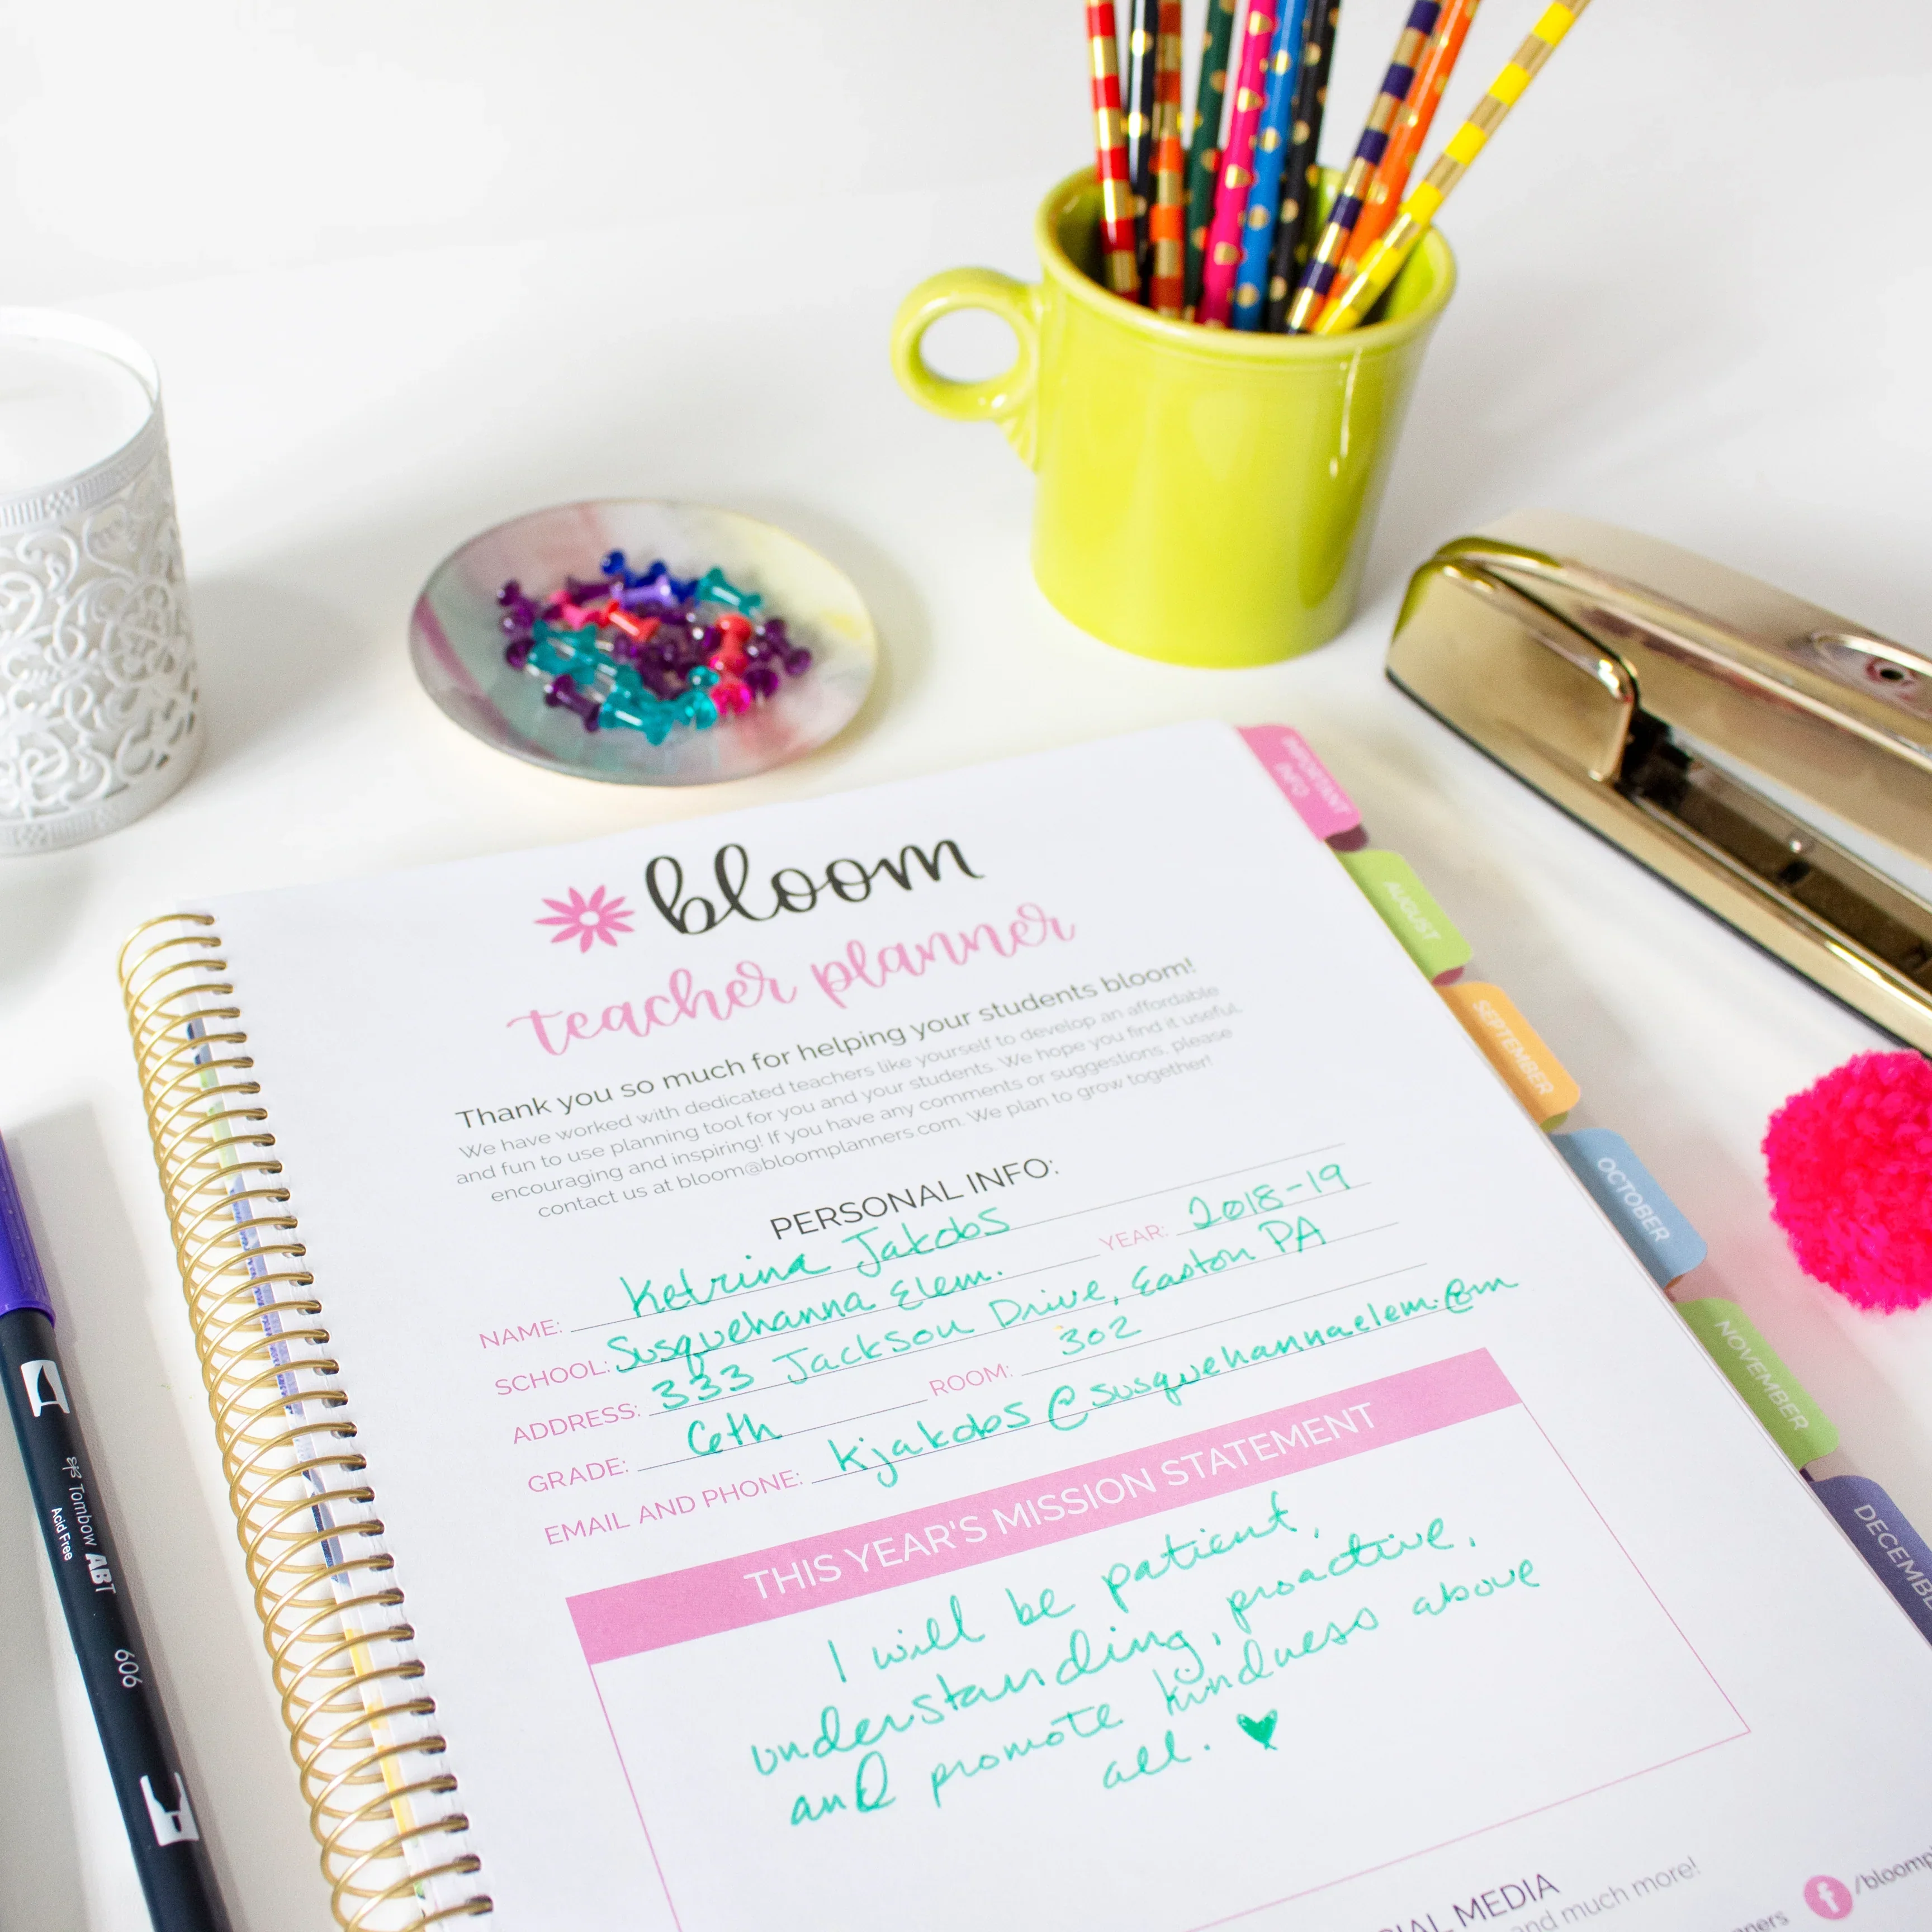 bloom
teacher planner
Thank you so much for helping your students bloom!
We have worked with dedicated teachers like yourself to develop an affordable
and fun to use planning tool for you and your students. We hope you find it useful,
encouraging and inspiring! If you have any comments or suggestions, please
contact us at bloom@bloomplanners.com. We plan to grow together!
PERSONAL INFO:
NAME: Ketrina Jakobs
SCHOOL: Susquehanna Elem. YEAR: 2018-19
ADDRESS: 333 Jackson Drive, Easton PA
GRADE: 6th ROOM: 302
EMAIL AND PHONE: kjakobs@susquehannaelem.com
THIS YEAR'S MISSION STATEMENT
I will be patient,
understanding, proactive,
and promote kindness above
all. ♥
MEDIA
and much more!
IMPORTANT
INFO
AUGUST
SEPTEMBER
OCTOBER
NOVEMBER
Tombow ABT
Acid Free
606